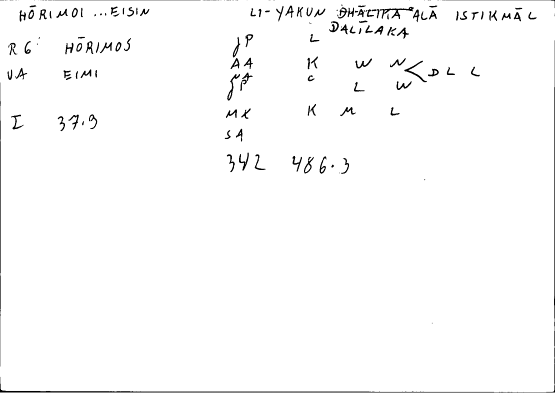 HŌRIMOI ...EISIN LI-YAKUN DHĀLIKA ʿALĀ ISTIKMĀL
DALĪLAKA
R6 HŌRIMOS JP L
VA EIMI AA K W N
NA C D L L
JP L W
I 37.9 MX K M L
SA
342 486.3